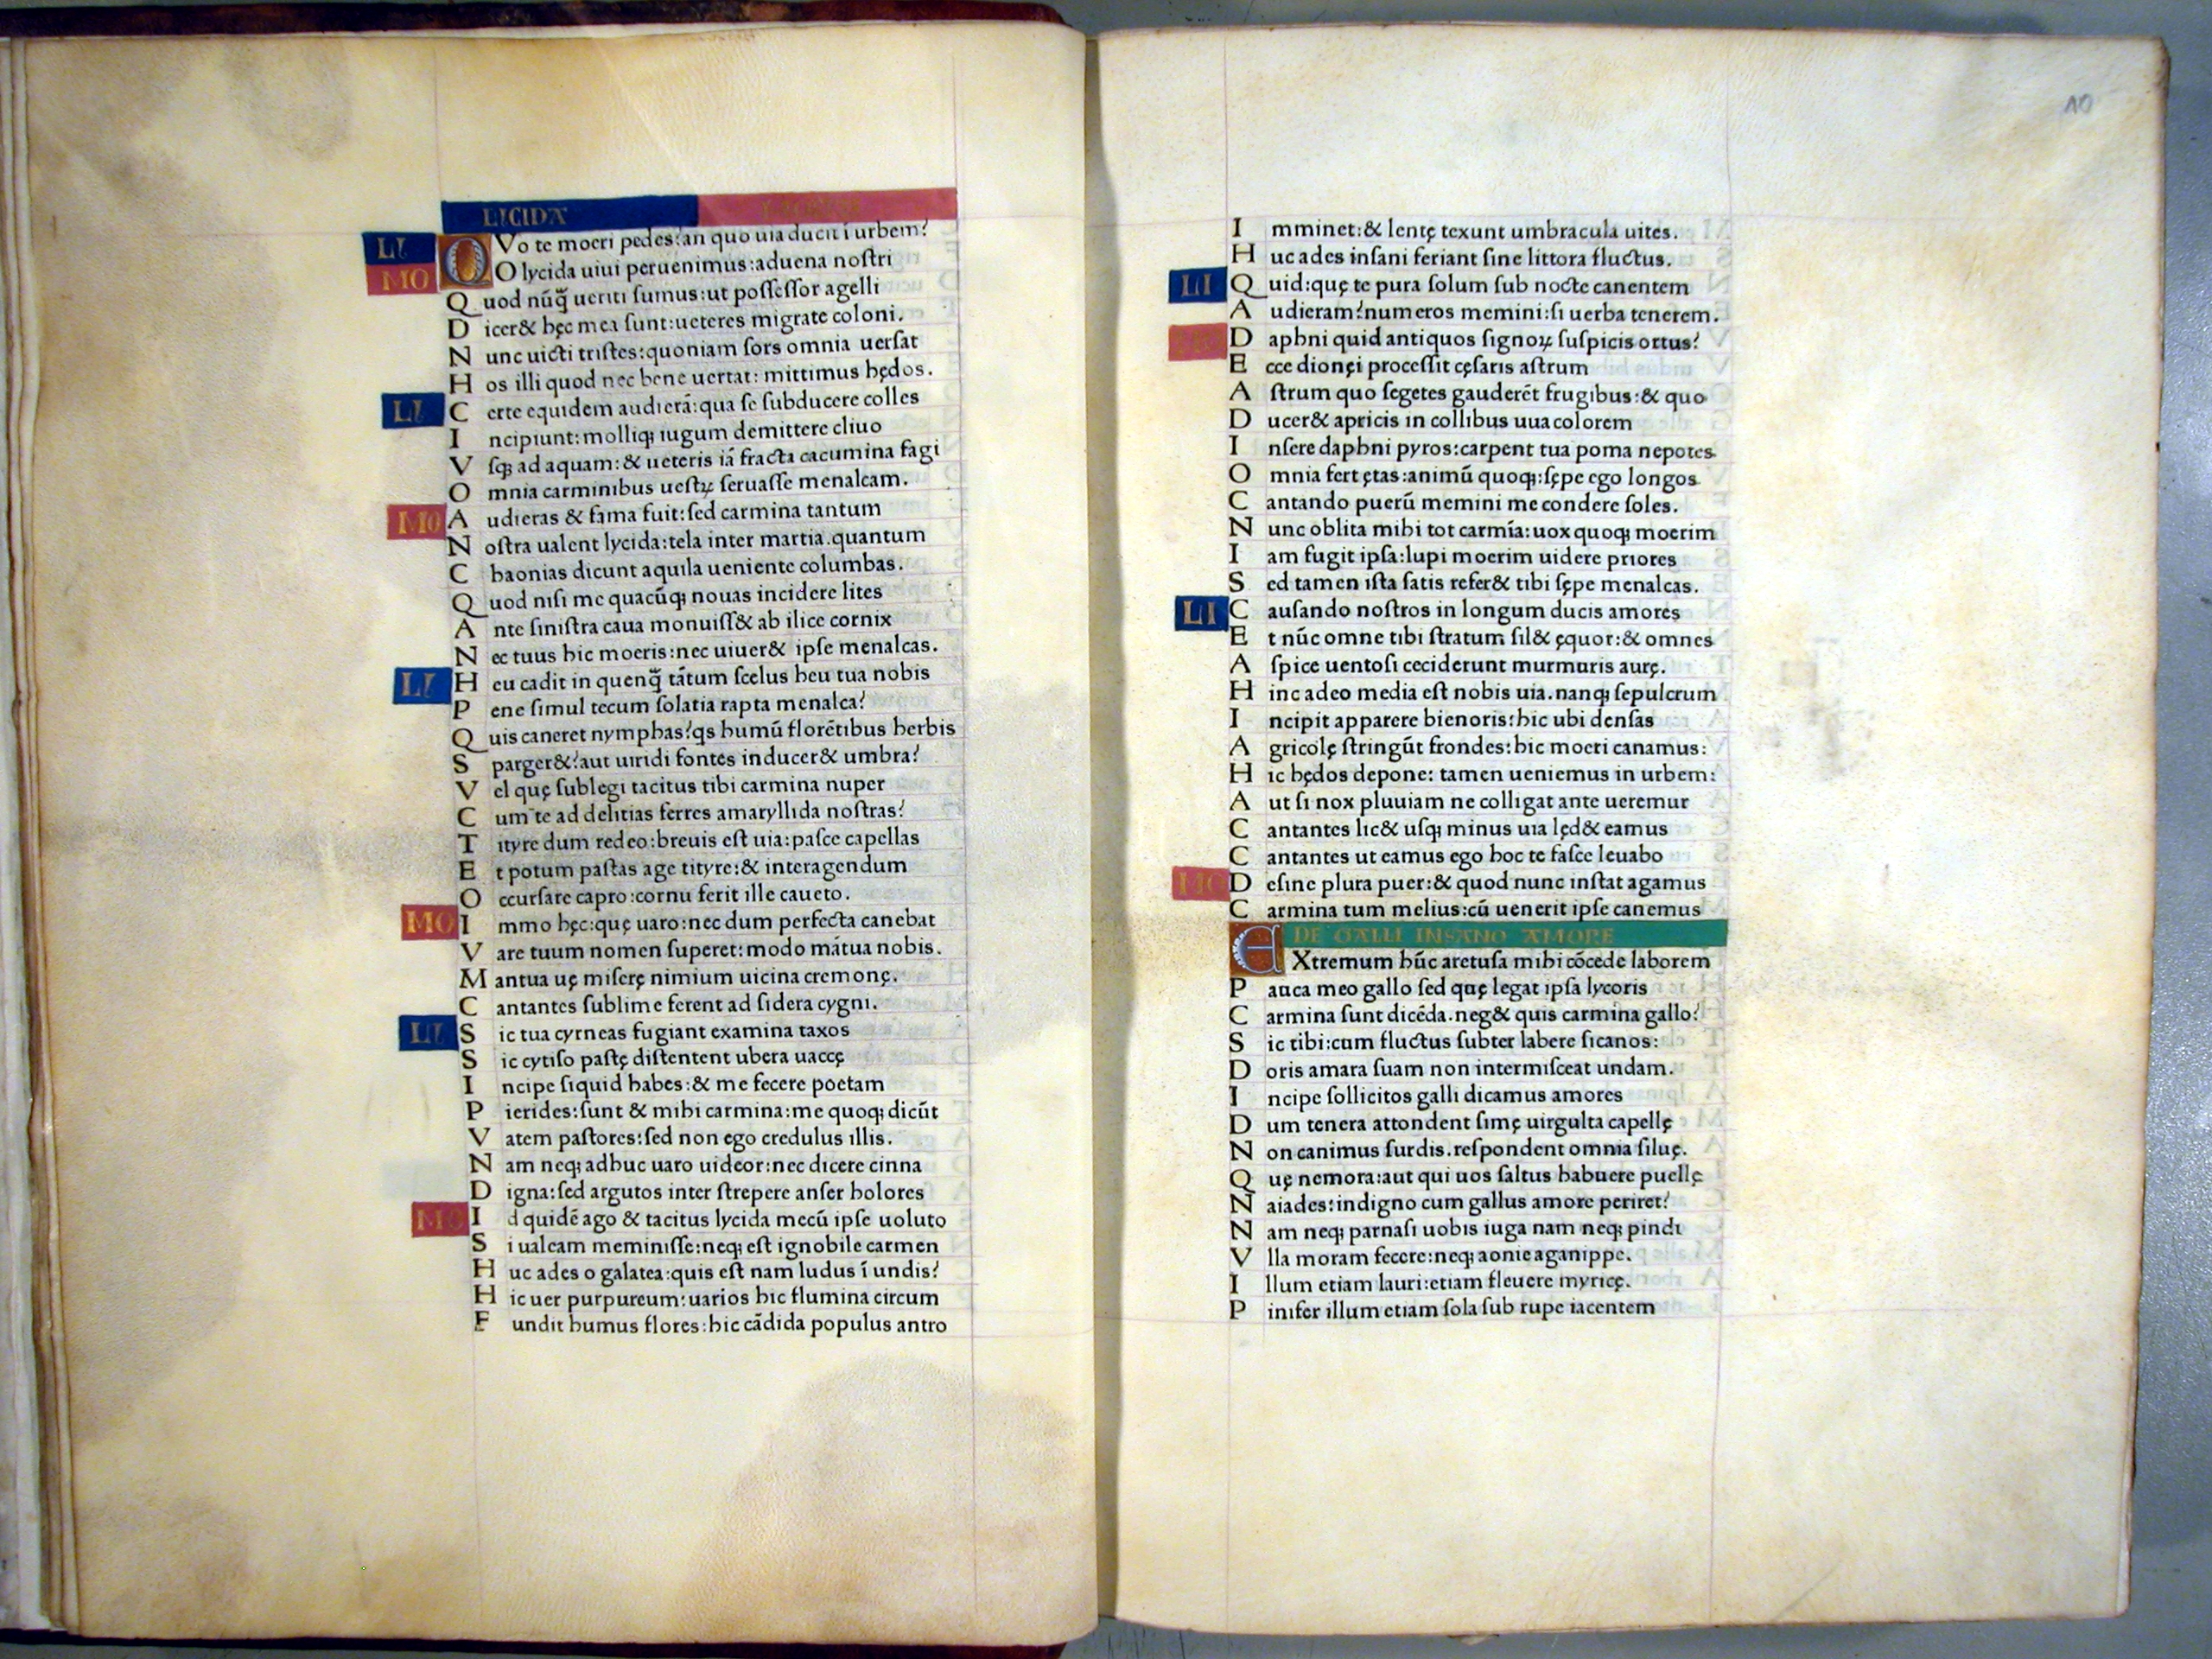 LICIDA
LI Q Vo te moeri pedes? an quo uia ducit ĩ urbem?
MO O lycida uiui peruenimus: aduena nostri
Quod nũq̃ ueriti sumus: ut possessor agelli
Dicer& hęc mea sunt: ueteres migrate coloni.
Nunc uicti tristes: quoniam sors omnia uersat
Hos illi quod nec bene uertat: mittimus hędos.
LI Certe equidem audierã: qua se subducere colles
Incipiunt: molliq; iugum demittere cliuo
Vsq; ad aquam: & ueteris iã fracta cacumina fagi
Omnia carminibus uestꝝ seruasse menalcam.
MO Audieras & fama fuit: sed carmina tantum
Nostra ualent lycida: tela inter martia. quantum
Chaonias dicunt aquila ueniente columbas.
Quod nisi me quacũq; nouas incidere lites
Ante sinistra caua monuiss& ab ilice cornix
Nec tuus hic moeris: nec uiuer& ipse menalcas.
LI Heu cadit in quenq̃ tãtum scelus heu tua nobis
Pene simul tecum solatia rapta menalca?
Quis caneret nymphas? qs humũ florẽtibus herbis
Sparger&? aut uiridi fontes inducer& umbra?
Vel quę sublegi tacitus tibi carmina nuper
Cum te ad delitias ferres amaryllida nostras?
Tityre dum redeo: breuis est uia: pasce capellas
Et potum pastas age tityre: & interagendum
Occursare capro: cornu ferit ille caueto.
MO Immo hęc: quę uaro: nec dum perfecta canebat
Vare tuum nomen superet: modo mãtua nobis.
Mantua uę miserę nimium uicina cremonę.
Cantantes sublime ferent ad sidera cygni.
LI Sic tua cyrneas fugiant examina taxos
Sic cytiso pastę distentent ubera uaccę
Incipe siquid habes: & me fecere poetam
Pierides: sunt & mihi carmina: me quoq; dicũt
Vatem pastores: sed non ego credulus illis.
Nam neq; adhuc uaro uideor: nec dicere cinna
Digna: sed argutos inter strepere anser holores
MO Id quidẽ ago & tacitus lycida mecũ ipse uoluto
Si ualeam meminisse: neq; est ignobile carmen
Huc ades o galatea: quis est nam ludus ĩ undis?
Hic uer purpureum: uarios hic flumina circum
Fundit humus flores: hic cãdida populus antro
10
Imminet: & lentę texunt umbracula uites.
Huc ades insani feriant sine littora fluctus.
LI Quid: quę te pura solum sub nocte canentem
Audieram? numeros memini: si uerba tenerem.
MO Daphni quid antiquos signoꝝ suspicis ortus?
Ecce dionęi processit cęsaris astrum
Astrum quo segetes gauderẽt frugibus: & quo
Ducer& apricis in collibus uua colorem
Insere daphni pyros: carpent tua poma nepotes
Omnia fert ętas: animũ quoq;: sępe ego longos
Cantando puerũ memini me condere soles.
Nunc oblita mihi tot carmĩa: uox quoq; moerim
Iam fugit ipsa: lupi moerim uidere priores
Sed tamen ista satis refer& tibi sępe menalcas.
LI Causando nostros in longum ducis amores
Et nũc omne tibi stratum sil& ęquor: & omnes
Aspice uentosi ceciderunt murmuris aurę.
Hinc adeo media est nobis uia. nanq; sepulcrum
Incipit apparere bienoris: hic ubi densas
Agricolę stringũt frondes: hic moeri canamus:
Hic hędos depone: tamen ueniemus in urbem:
Aut si nox pluuiam ne colligat ante ueremur
Cantantes lic& usq; minus uia lęd& eamus
Cantantes ut eamus ego hoc te fasce leuabo
MO Desine plura puer: & quod nunc instat agamus
Carmina tum melius: cũ uenerit ipse canemus
DE GALLI INSANO AMORE
EXtremum hũc aretusa mihi cõcede laborem
Pauca meo gallo sed quę legat ipsa lycoris
Carmina sunt dicẽda. neg& quis carmina gallo?
Sic tibi: cum fluctus subter labere sicanos:
Doris amara suam non intermisceat undam.
Incipe sollicitos galli dicamus amores
Dum tenera attondent simę uirgulta capellę
Non canimus surdis. respondent omnia siluę.
Quę nemora: aut qui uos saltus habuere puellę
Naiades: indigno cum gallus amore periret?
Nam neq; parnasi uobis iuga nam neq; pindi
Vlla moram fecere: neq; aonie aganippe.
Illum etiam lauri: etiam fleuere myricę.
Pinifer illum etiam sola sub rupe iacentem